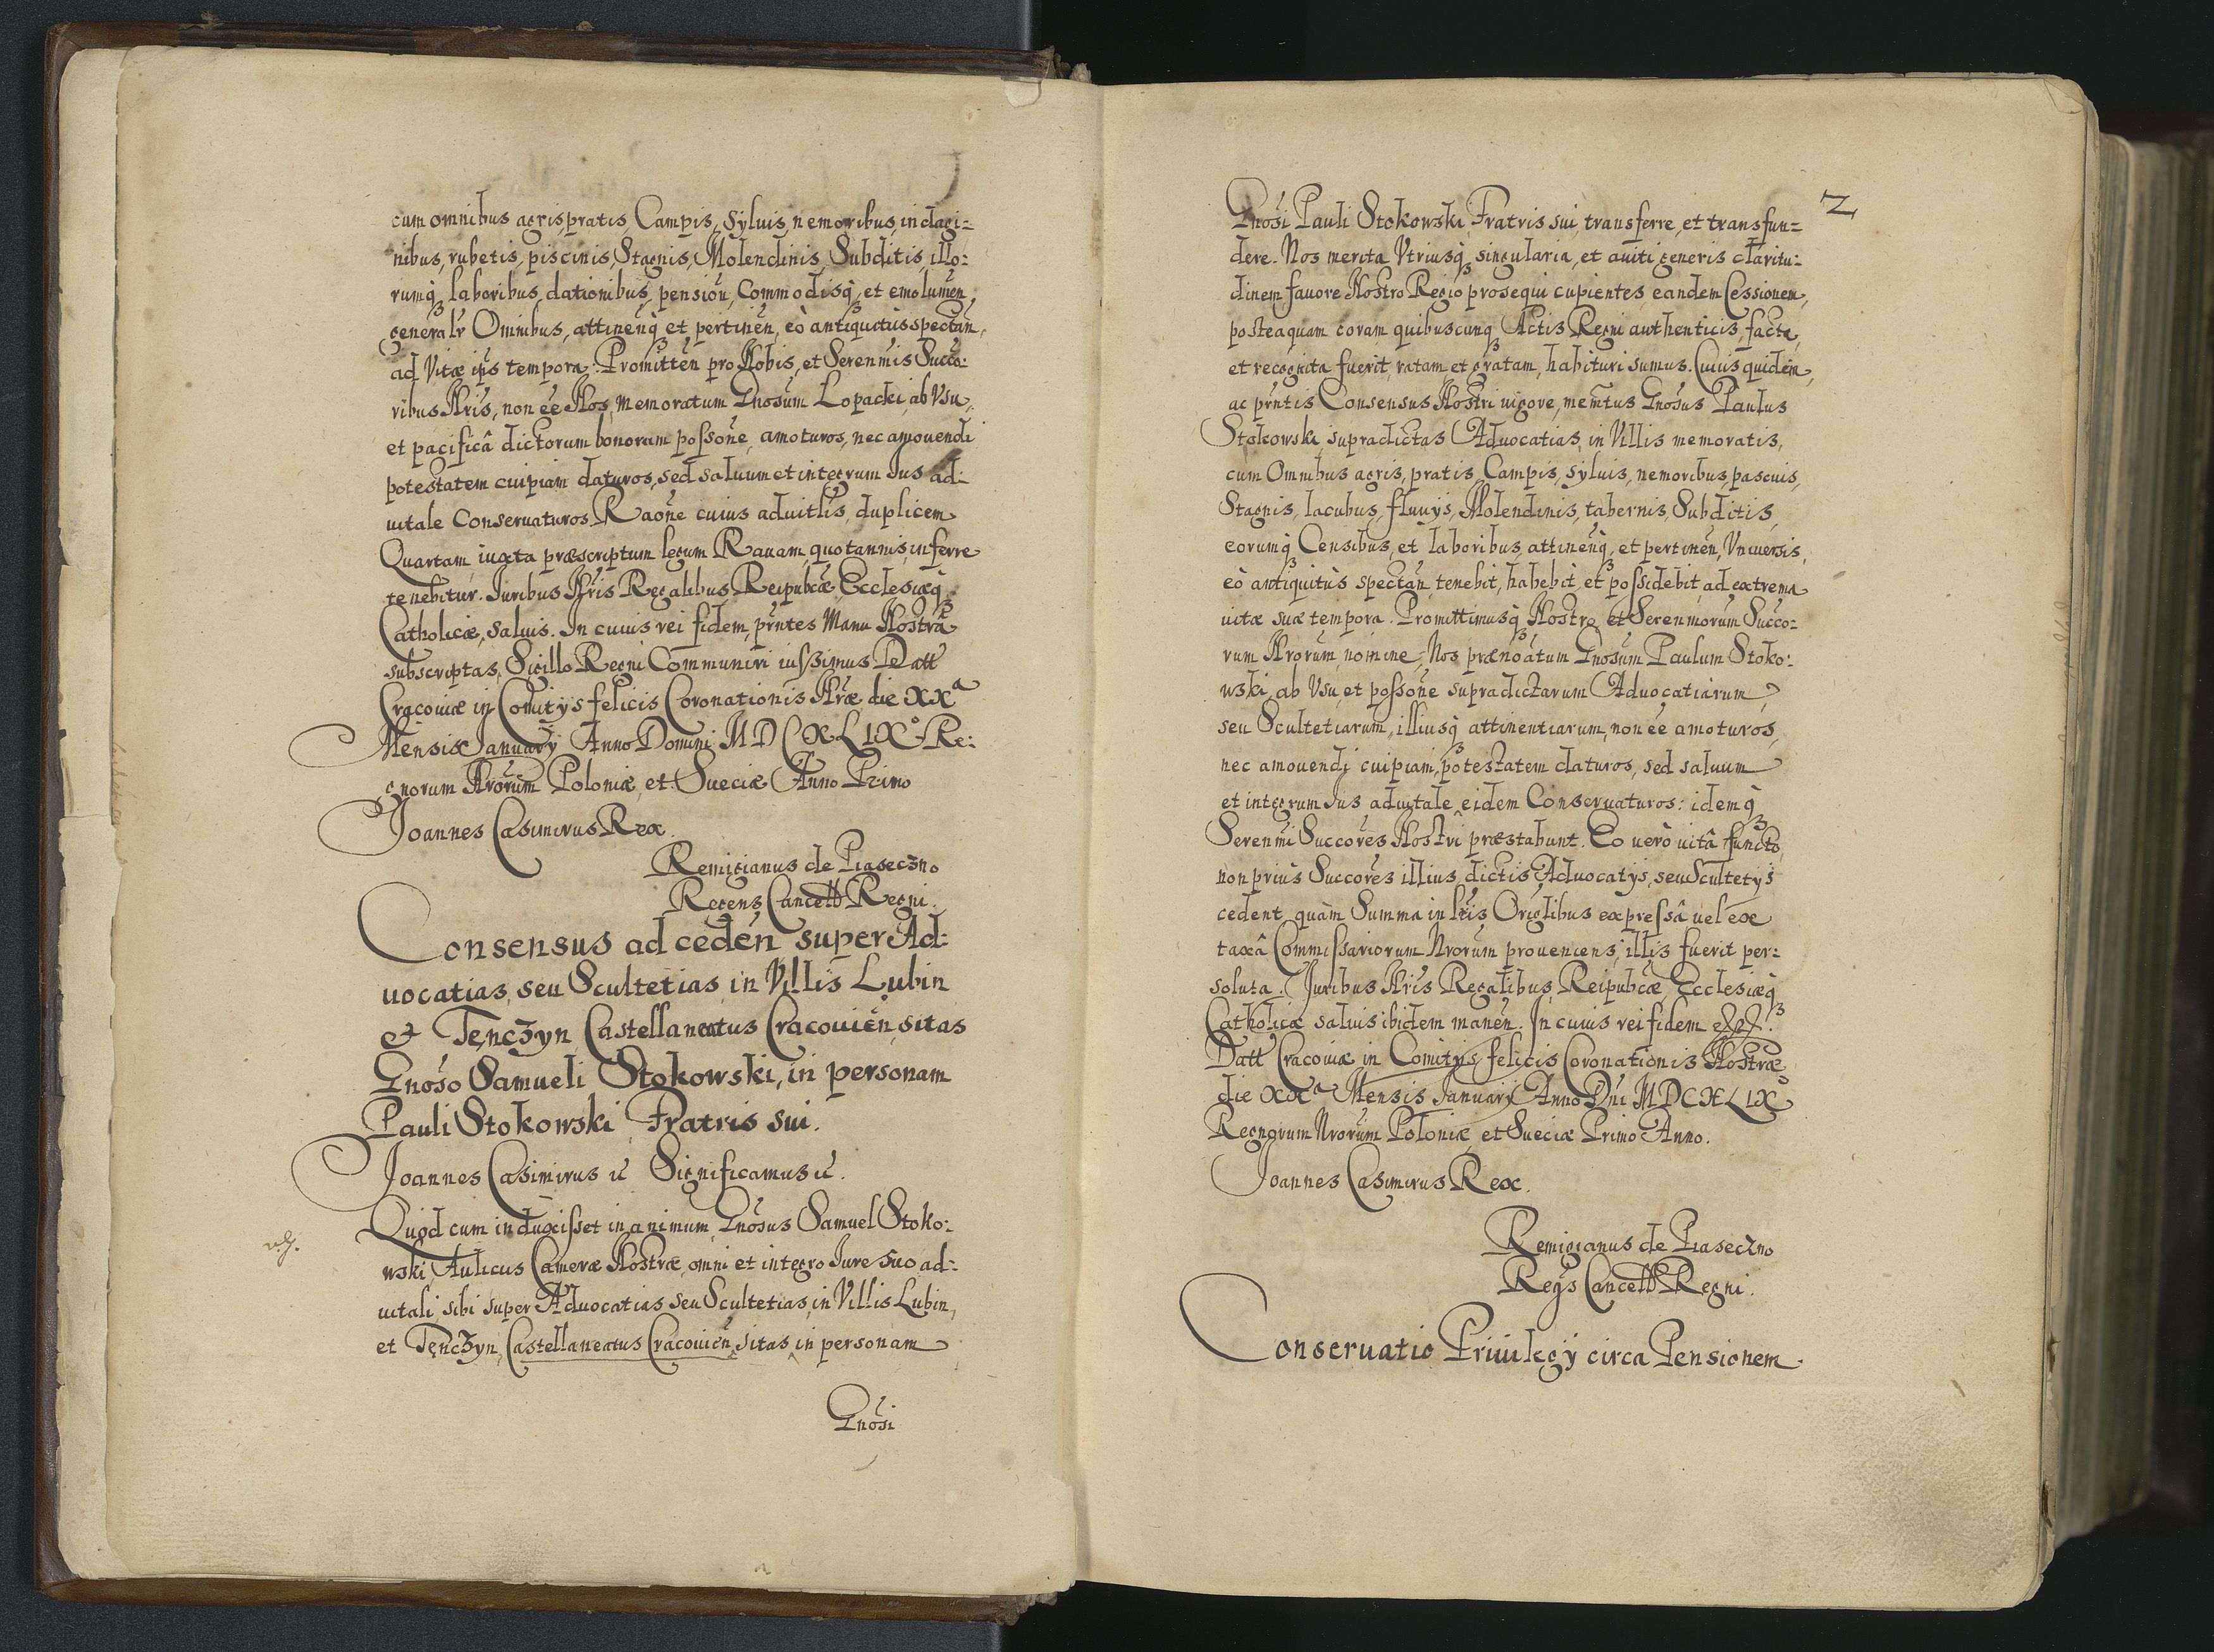 cum omnibus agris, pratis, Campis, Syluis, nemoribus, indagi=
nibus, rubetis, piscinis, Stagnis, Molendinis, Subditis, illo:
rumq3 laboribus, dationibus, pensioũ, Commodisq3, et emolumeñ,
generalr̃ Omnibus, attineñq3 et pertineñ, eò antiquitùs spectañ,
ad Vitæ ip̃s tempora. Promitteñ pro Nobis, et Serenmis Succo:
ribus Nr̃is, non eẽ Nos, memoratum Gnosũm Lopacki, ab Vsu,
et pacificâ dictorum bonorum possoñe, amoturos, nec amouendi
potestatem cuipiam daturos, sed saluum et integrum Jus ad:
uitale Conseruaturos. Raoñe cuius aduitl̃is, duplicem
Quartam, iuxta præscriptum legum Rauam, quotannis, inferre
tenebitur. Juribus Nr̃is Regalibus Reipubcæ, Ecclesiæq3
Catholicæ, saluis. In cuius rei fidem, pñtes Manu Nostrâ
subscriptas, Sigillo Regni Communiri iussimus. Datt
Cracouiæ in Comitijs felicis Coronationis Nr̃æ die XXa
Mensis January Anno Domini MDCXLIXo. Re:
gnorum Nrorũm Poloniæ, et Sueciæ Anno Primo
Joannes Casimirus Rex.
Remigianus de Piaseczno
Regens Cancell Regni.
Consensus ad cedeñ super Ad:
uocatias, seu Scultetias, in Villis Lubin
et Tęnczyn, Castellaneatus Cracouieñ, sitas
Gnoso Samueli Stokowski, in personam
Pauli Stokowski, Fratris sui.
Joannes Casimirus &c Significamus &c.
Quòd cum induxisset in animum, Gnosus Samuel Stoko:
wski, Aulicus Cameræ Nostræ, omni et integro Jure suo ad:
uitali, sibi super Aduocatias seu Scultetias, in Villis Lubin,
et Tęnczyn, Castellaneatus Cracouieñ, sitas, in personam
Gnosi
2
Gnosi Pauli Stokowski, Fratris sui, transferre, et transfun=
dere. Nos merita Vtriusq3 singularia, et auiti generis claritu:
dinem, fauore Nostro Regio prosequi cupientes, eandem Cessionem,
posteaquam coram quibuscunq3 Actis Regni authenticis, facta,
et recognita fuerit, ratam, et gratam, habituri sumus. Cuius quidem,
ac pr̃ntis Consensus Nostri uigore, mem̃tus Gnosus Paulus
Stokowski, supradictas Aduocatias, in Villis memoratis,
cum Omnibus agris, pratis, Campis, syluis, nemoribus, pascuis,
Stagnis, lacubus, fluuijs, Molendinis, tabernis, Subditis,
eorumq3 Censibus, et laboribus, attineñq3, et pertineñ, Vniuersis,
eò antiquitùs spectañ, tenebit, habebit, et possidebit, ad extrema
uitæ suæ tempora. Promittimusq3 Nostro, et Serenmorum Succo:
rum Nrorum, nomine, Nos prænoatum Gnosum Paulum Stoko:
wski, ab Vsu, et possoñe supradictarum Aduocatiarum,
seu Scultetiarum, illiusq3 attinentiarum, non eẽ amoturos,
nec amouendi cuipiam, potestatem daturos, sed saluum
et integrum Jus aduitale, eidem Conseruaturos: idemq3
Serenmi Succores Nostri præstabunt. Eo uerò uitâ functo,
non priùs Succores illius, dictis Aduocatijs, seu Scultetijs
cedent, quàm Summa in lr̃is Orig̃libus expressâ uel ex
taxâ Commissariorum Nrorũm proueniens, illis fuerit per:
soluta. Juribus Nr̃is Regalibus, Reipubcæ, Ecclesiæq3
Catholicæ saluis ibidem maneñ. In cuius rei fidem
Datt Cracouiæ in Comitijs felicis Coronationis Nostræ,
die XXa Mensis Januarij Anno Dn̄i MDCXLIX
Regnorum Nrorũm Poloniæ, et Sueciæ Primo Anno.
Joannes Casimirus Rex.
Remigianus de Piaseczno
Regs Cancell Regni.
Conseruatio Priuilegij circa Pensionem